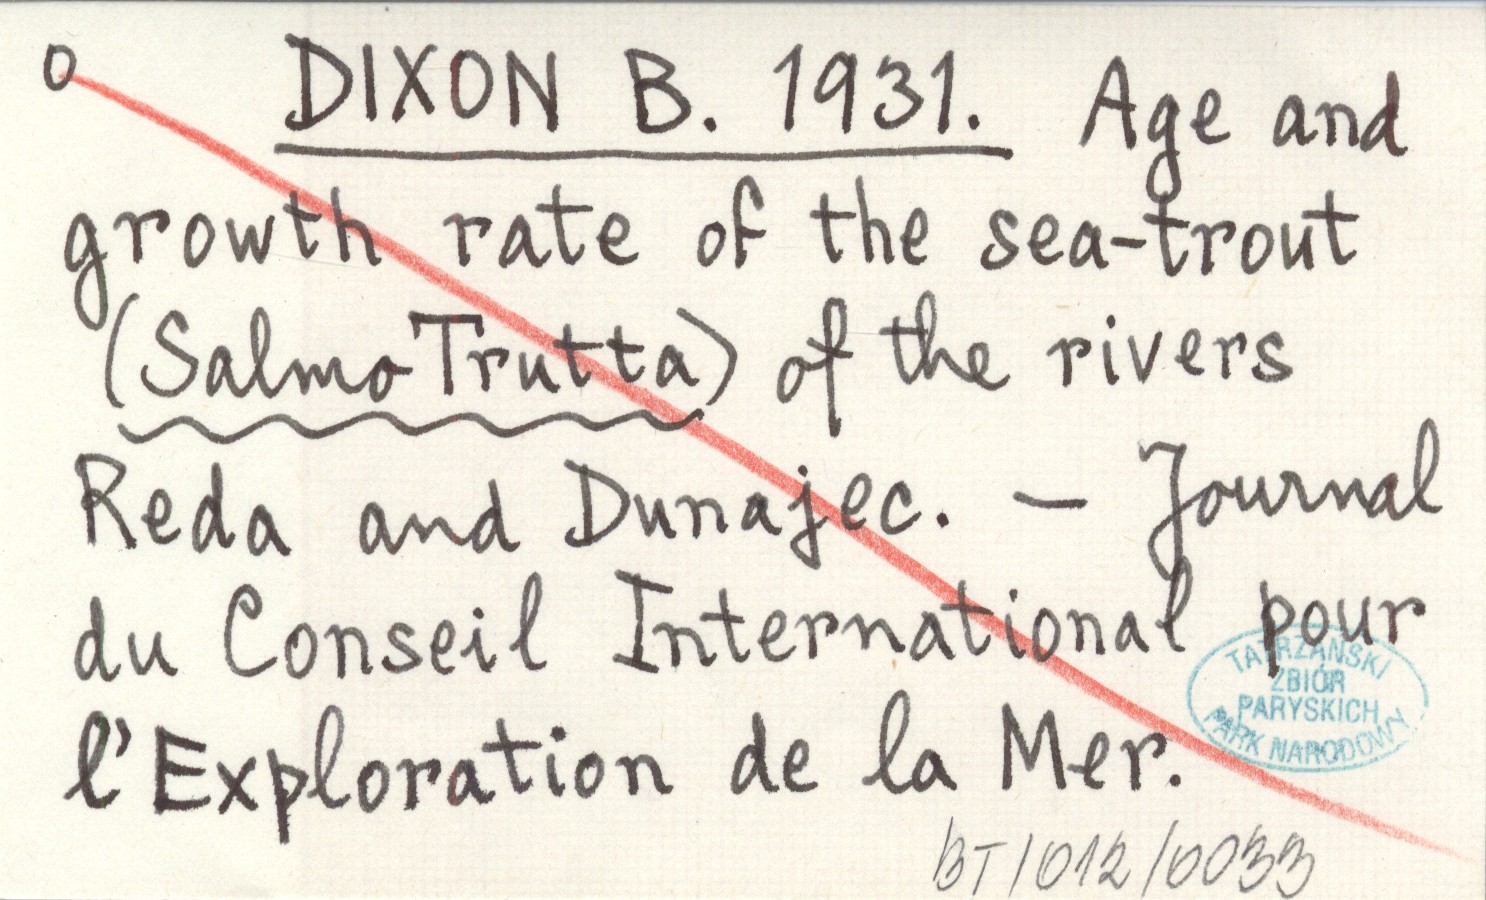 O DIXON B. 1931. Age and
growth rate of the sea-trout
(Salmo Trutta) of the rivers
Reda and Dunajec. — Journal
du Conseil International pour
l'Exploration de la Mer.
TATRZAŃSKI
ZBIÓR
PARYSKICH
PARK NARODOWY
BT/012/0033